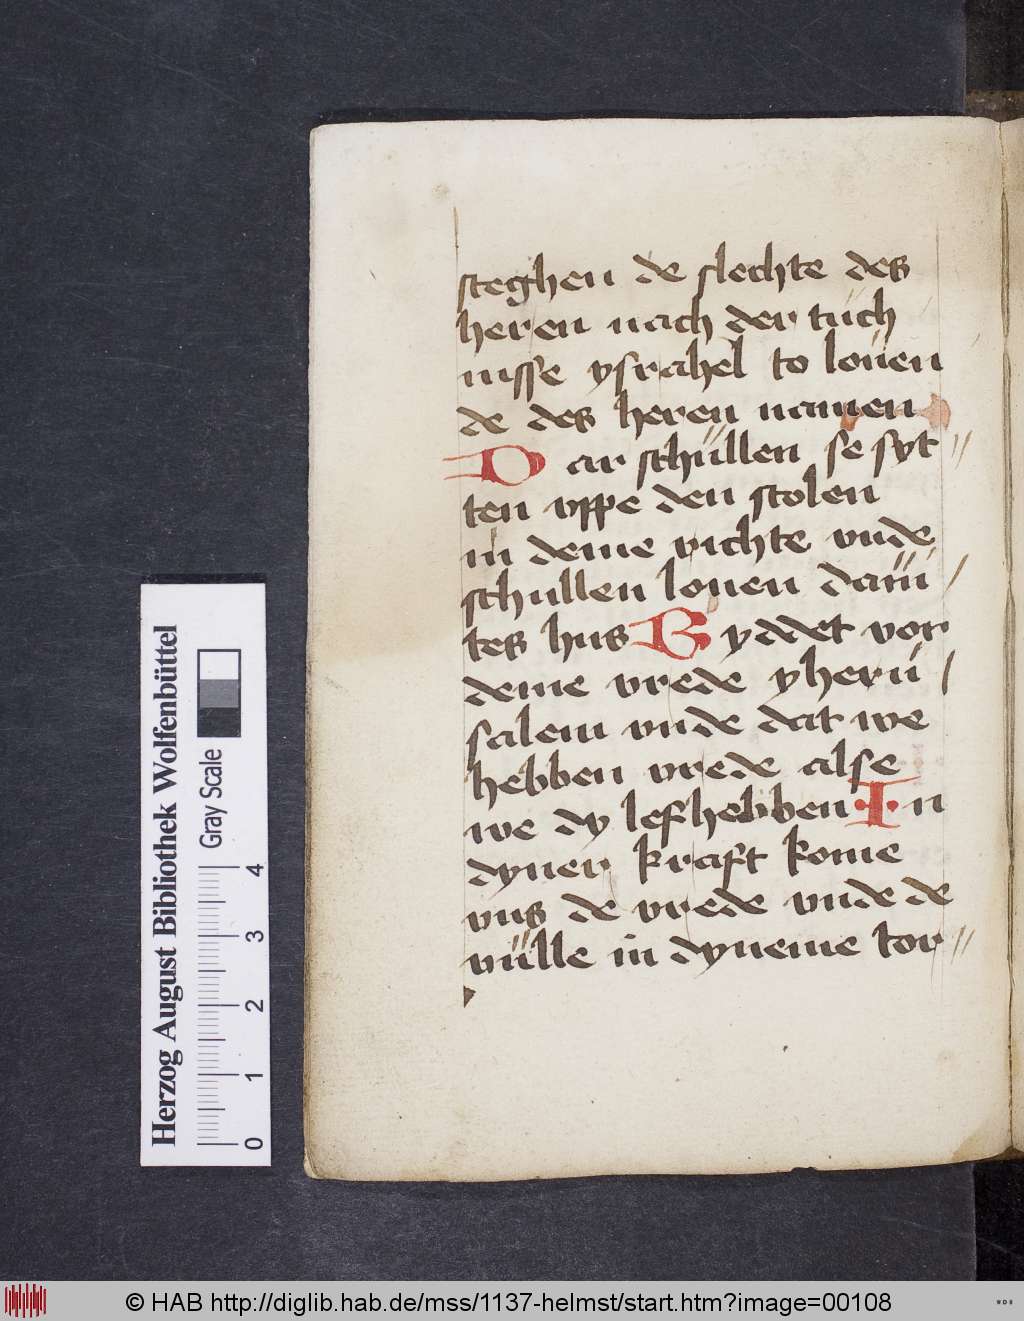 steghen de slechte des
heren nach der tüch
nisse ysrahel to louen
de des heren namen
Dar schüllen se syt
ten vppe den stolen
in deme richte vnde
schullen louen daui
tes hus Byddet vor
deme vrede yherü
salem vnde dat we
hebben vrede alse
we dy lefhebben In
dyner kraft kome
vns de vrede vnde de
vülle in dyneme tor
Herzog August Bibliothek Wolfenbüttel
Gray Scale
0 1 2 3 4
© HAB http://diglib.hab.de/mss/1137-helmst/start.htm?image=00108